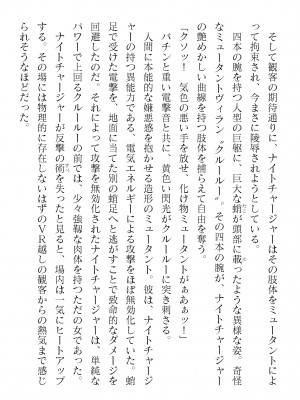 そして観客の期待通りに、ナイトチャージャーはその肢体をミュータントによ
って拘束され、今まさに陵辱されようとしている。
四本の腕を持つ人型の巨躯に、巨大な蛸が頭部に載ったような異様な姿。奇怪
なミュータントヴィラン〝クルールー〟。その四本の腕が、ナイトチャージャー
の艶めかしい曲線を持つ肢体を捕らえて自由を奪う。
「クソッ！　気色の悪い手を放せ、化け物ミュータントがぁあぁッ！」
バチンと重い電撃音と共に、黄色い閃光がクルールーに突き刺さる。
人間に本能的な嫌悪感を抱かせる造形のミュータント。彼は、ナイトチャージ
ャーの持つ異能力である、電気エネルギーによる攻撃をほぼ無効化していた。蛸
足で受けた電撃を、地面に当てた別の蛸足へと逃がすことで致命的なダメージを
回避したのだ。それによって攻撃を無効化されたナイトチャージャーは、単純な
パワーで上回るクルールーの前では、少々強靭な肉体を持つただの女であった。
ナイトチャージャーが反撃の術を失ったと見ると、場内は一気にヒートアップ
する。その場には物理的に存在しないはずのVR越しの観客からの熱気まで感じ
られそうなほどだった。